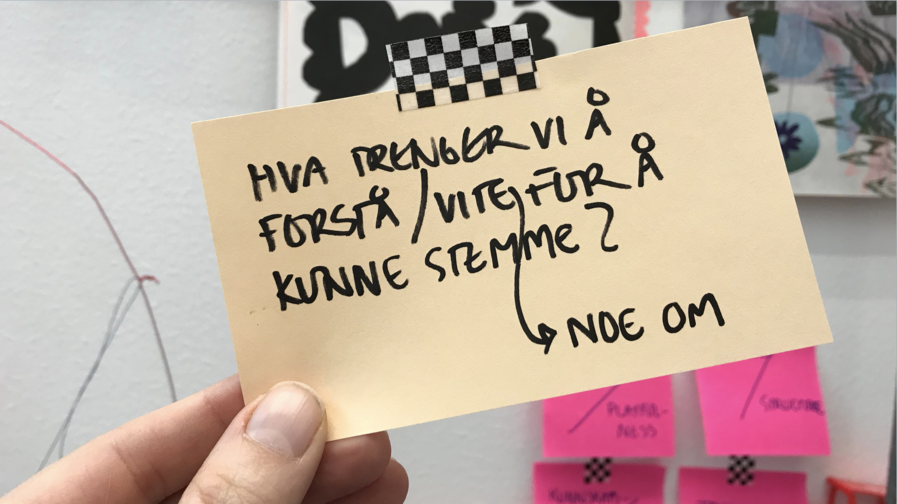 HVA TRENGER VI Å
FORSTÅ / VITE FOR Å
KUNNE STEMME?
NOE OM
PLAYFUL-
NESS
STRUCTURE